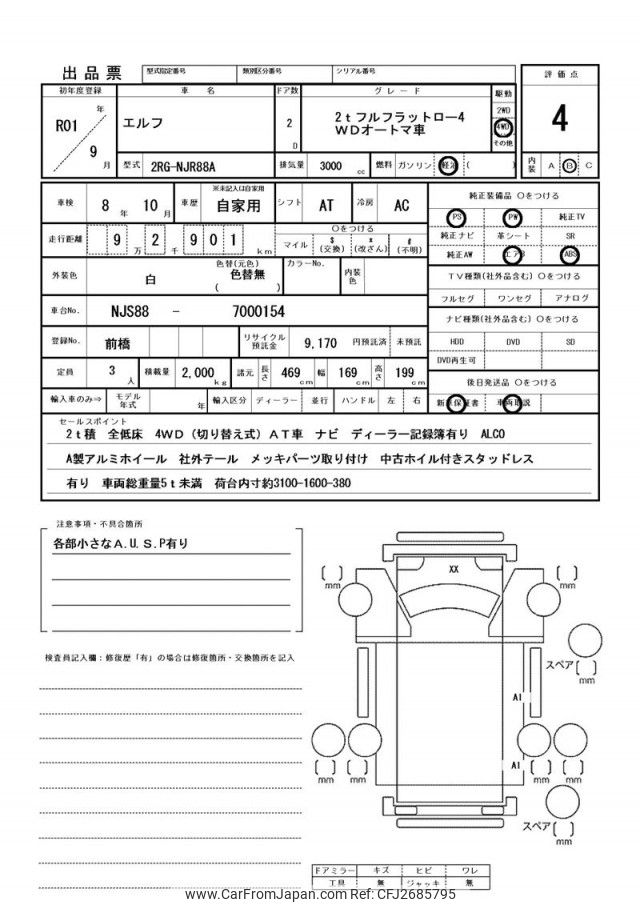 出品票 型式指定番号 類別区分番号 シリアル番号
初年度登録 車名 ドア数 グレード 駆動 評価点
R01 年 9 月 エルフ 2 D 2tフルフラットロー4
WDオートマ車 2WD 4WD その他 4
型式 2RG-NJR88A 排気量 3000 cc 燃料 ガソリン 軽油 ( ) 内装 A B C
車検 8 年 10 月 車歴 ※未記入は自家用 自家用 シフト AT 冷房 AC
純正装備品 ○をつける
走行距離 9 万 2 千 901 km ○をつける マイル $ (交換) * (改ざん) # (不明)
PS PW 純正TV
純正ナビ 革シート SR
純正AW エアB ABS
外装色 白 色替(元色) 色替無 ( ) カラーNo. 内装色
TV種類(社外品含む) ○をつける
フルセグ ワンセグ アナログ
車台No. NJS88 - 7000154
ナビ種類(社外品含む) ○をつける
登録No. 前橋 リサイクル預託金 9,170 円預託済 未預託
HDD DVD SD
DVD再生可
定員 3 人 積載量 2,000 kg 諸元 長さ 469 cm 幅 169 cm 高さ 199 cm
後日発送品 ○をつける
輸入車のみ⇒ モデル年式 年 輸入区分 ディーラー 並行 ハンドル 左 右
新車保証書 車両取説
セールスポイント
2t積 全低床 4WD (切り替え式) AT車 ナビ ディーラー記録簿有り ALCO
A製アルミホイール 社外テール メッキパーツ取り付け 中古ホイル付きスタッドレス
有り 車両総重量5t未満 荷台内寸約3100-1600-380
注意事項・不具合箇所
各部小さなA.U.S.P有り
検査員記入欄:修復歴「有」の場合は修復箇所・交換箇所を記入
XX
[ ] mm [ ] mm
スペア [ ] mm
A1
A1
[ ] mm [ ] mm [ ] mm [ ] mm
スペア [ ] mm
ドアミラー キズ ヒビ ワレ
工具 無 ジャッキ 無
www.CarFromJapan.com Ref: CFJ2685795